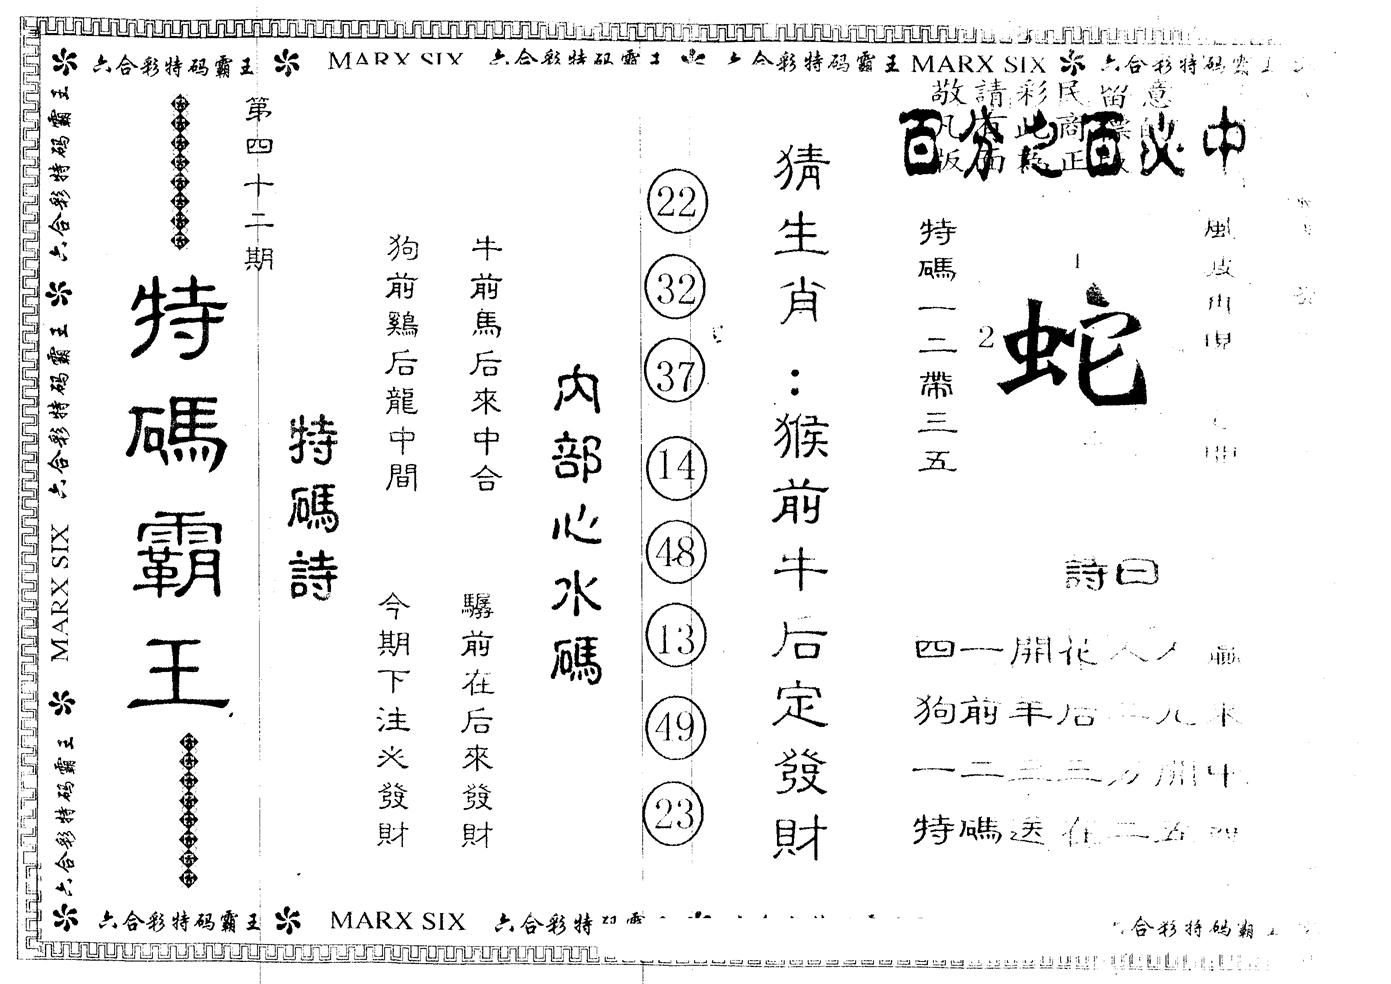 六合彩特码霸王 MARX SIX 六合彩特码霸王 六合彩特码霸王 MARX SIX 六合彩特码霸王
六合彩特码霸王
六合彩特码霸王
MARX SIX
六合彩特码霸王
第四十二期
特碼霸王
特碼詩
狗前鷄后龍中間
今期下注必發財
牛前馬后來中合
驏前在后來發財
內部心水碼
22
32
37
14
48
13
49
23
猜生肖：猴前牛后定發財
敬請彩民留意
百分之百必中
特碼一二帶三五
1
2
蛇
詩曰
四一開花人人
狗前羊后二
一二三三 開中
特碼送在二五四
六合彩特码霸王 MARX SIX 六合彩特码霸
合彩特码霸